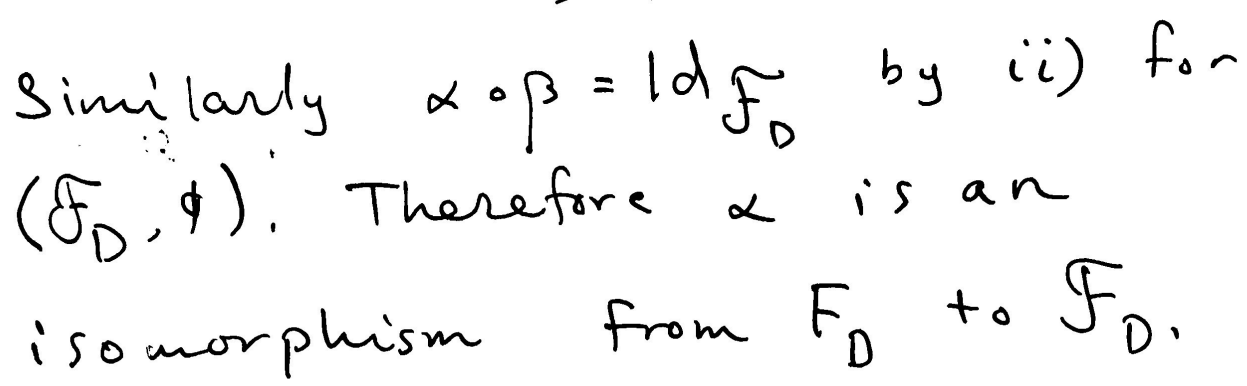 Similarly α∘β = Id 𝓕_D by ii) for
(𝓕_D, ϕ). Therefore α is an
isomorphism from F_D to 𝓕_D.